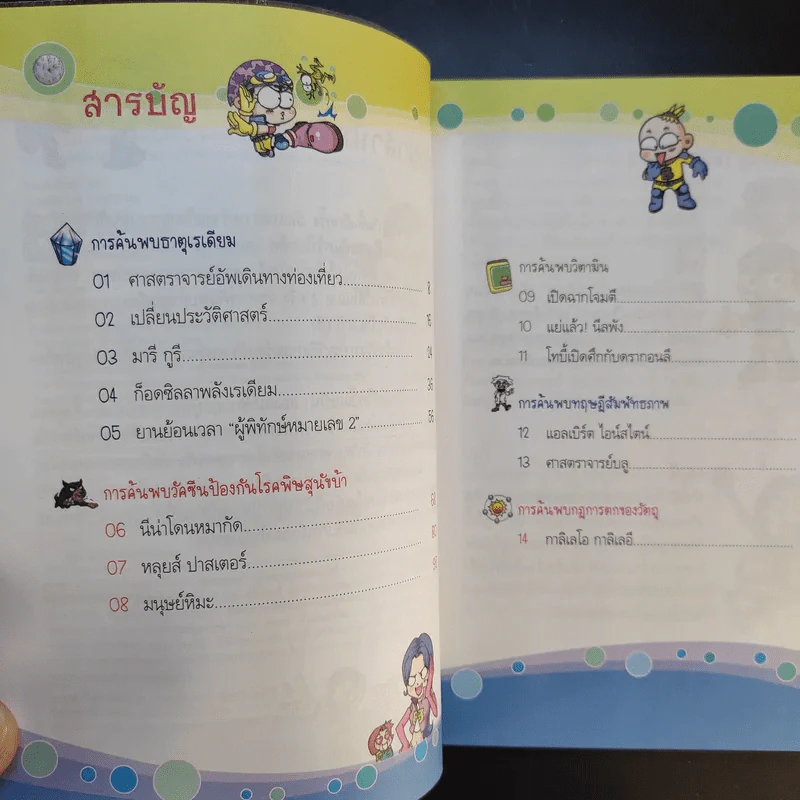 สารบัญ
การค้นพบธาตุเรเดียม
01 ศาสตราจารย์อัพเดินทางท่องเที่ยว 8
02 เปลี่ยนประวัติศาสตร์ 16
03 มารี กูรี 24
04 ก็อดซิลลาพลังเรเดียม 36
05 ยานย้อนเวลา “ผู้พิทักษ์หมายเลข 2” 56
การค้นพบวัคซีนป้องกันโรคพิษสุนัขบ้า
06 นีน่าโดนหมากัด 68
07 หลุยส์ ปาสเตอร์ 80
08 มนุษย์หิมะ
การค้นพบวิตามิน
09 เปิดฉากโจมตี
10 แย่แล้ว! นีลพัง
11 โทบี้เปิดศึกกับดรากอนลี
การค้นพบทฤษฎีสัมพัทธภาพ
12 แอลเบิร์ต ไอน์สไตน์
13 ศาสตราจารย์บลู
การค้นพบกฎการตกของวัตถุ
14 กาลิเลโอ กาลิเลอี